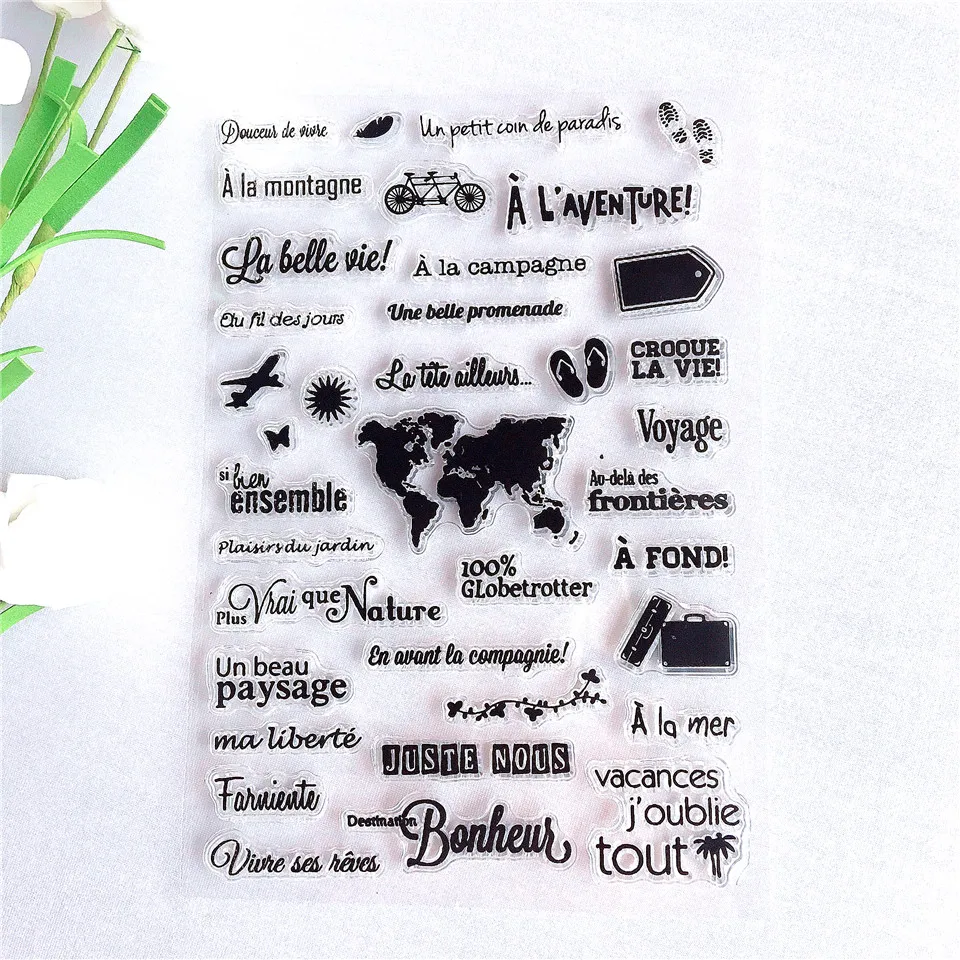 Douceur de vivre
Un petit coin de paradis
À la montagne
À L'AVENTURE!
La belle vie!
À la campagne
Au fil des jours
Une belle promenade
La tête ailleurs...
CROQUE
LA VIE!
Voyage
si bien
ensemble
Au-delà des
frontières
Plaisirs du jardin
À FOND!
100%
GLobetrotter
Plus Vrai que Nature
En avant la compagnie!
Un beau
paysage
À la mer
ma liberté
JUSTE NOUS
vacances
j'oublie
tout
Farniente
Destination
Bonheur
Vivre ses rêves